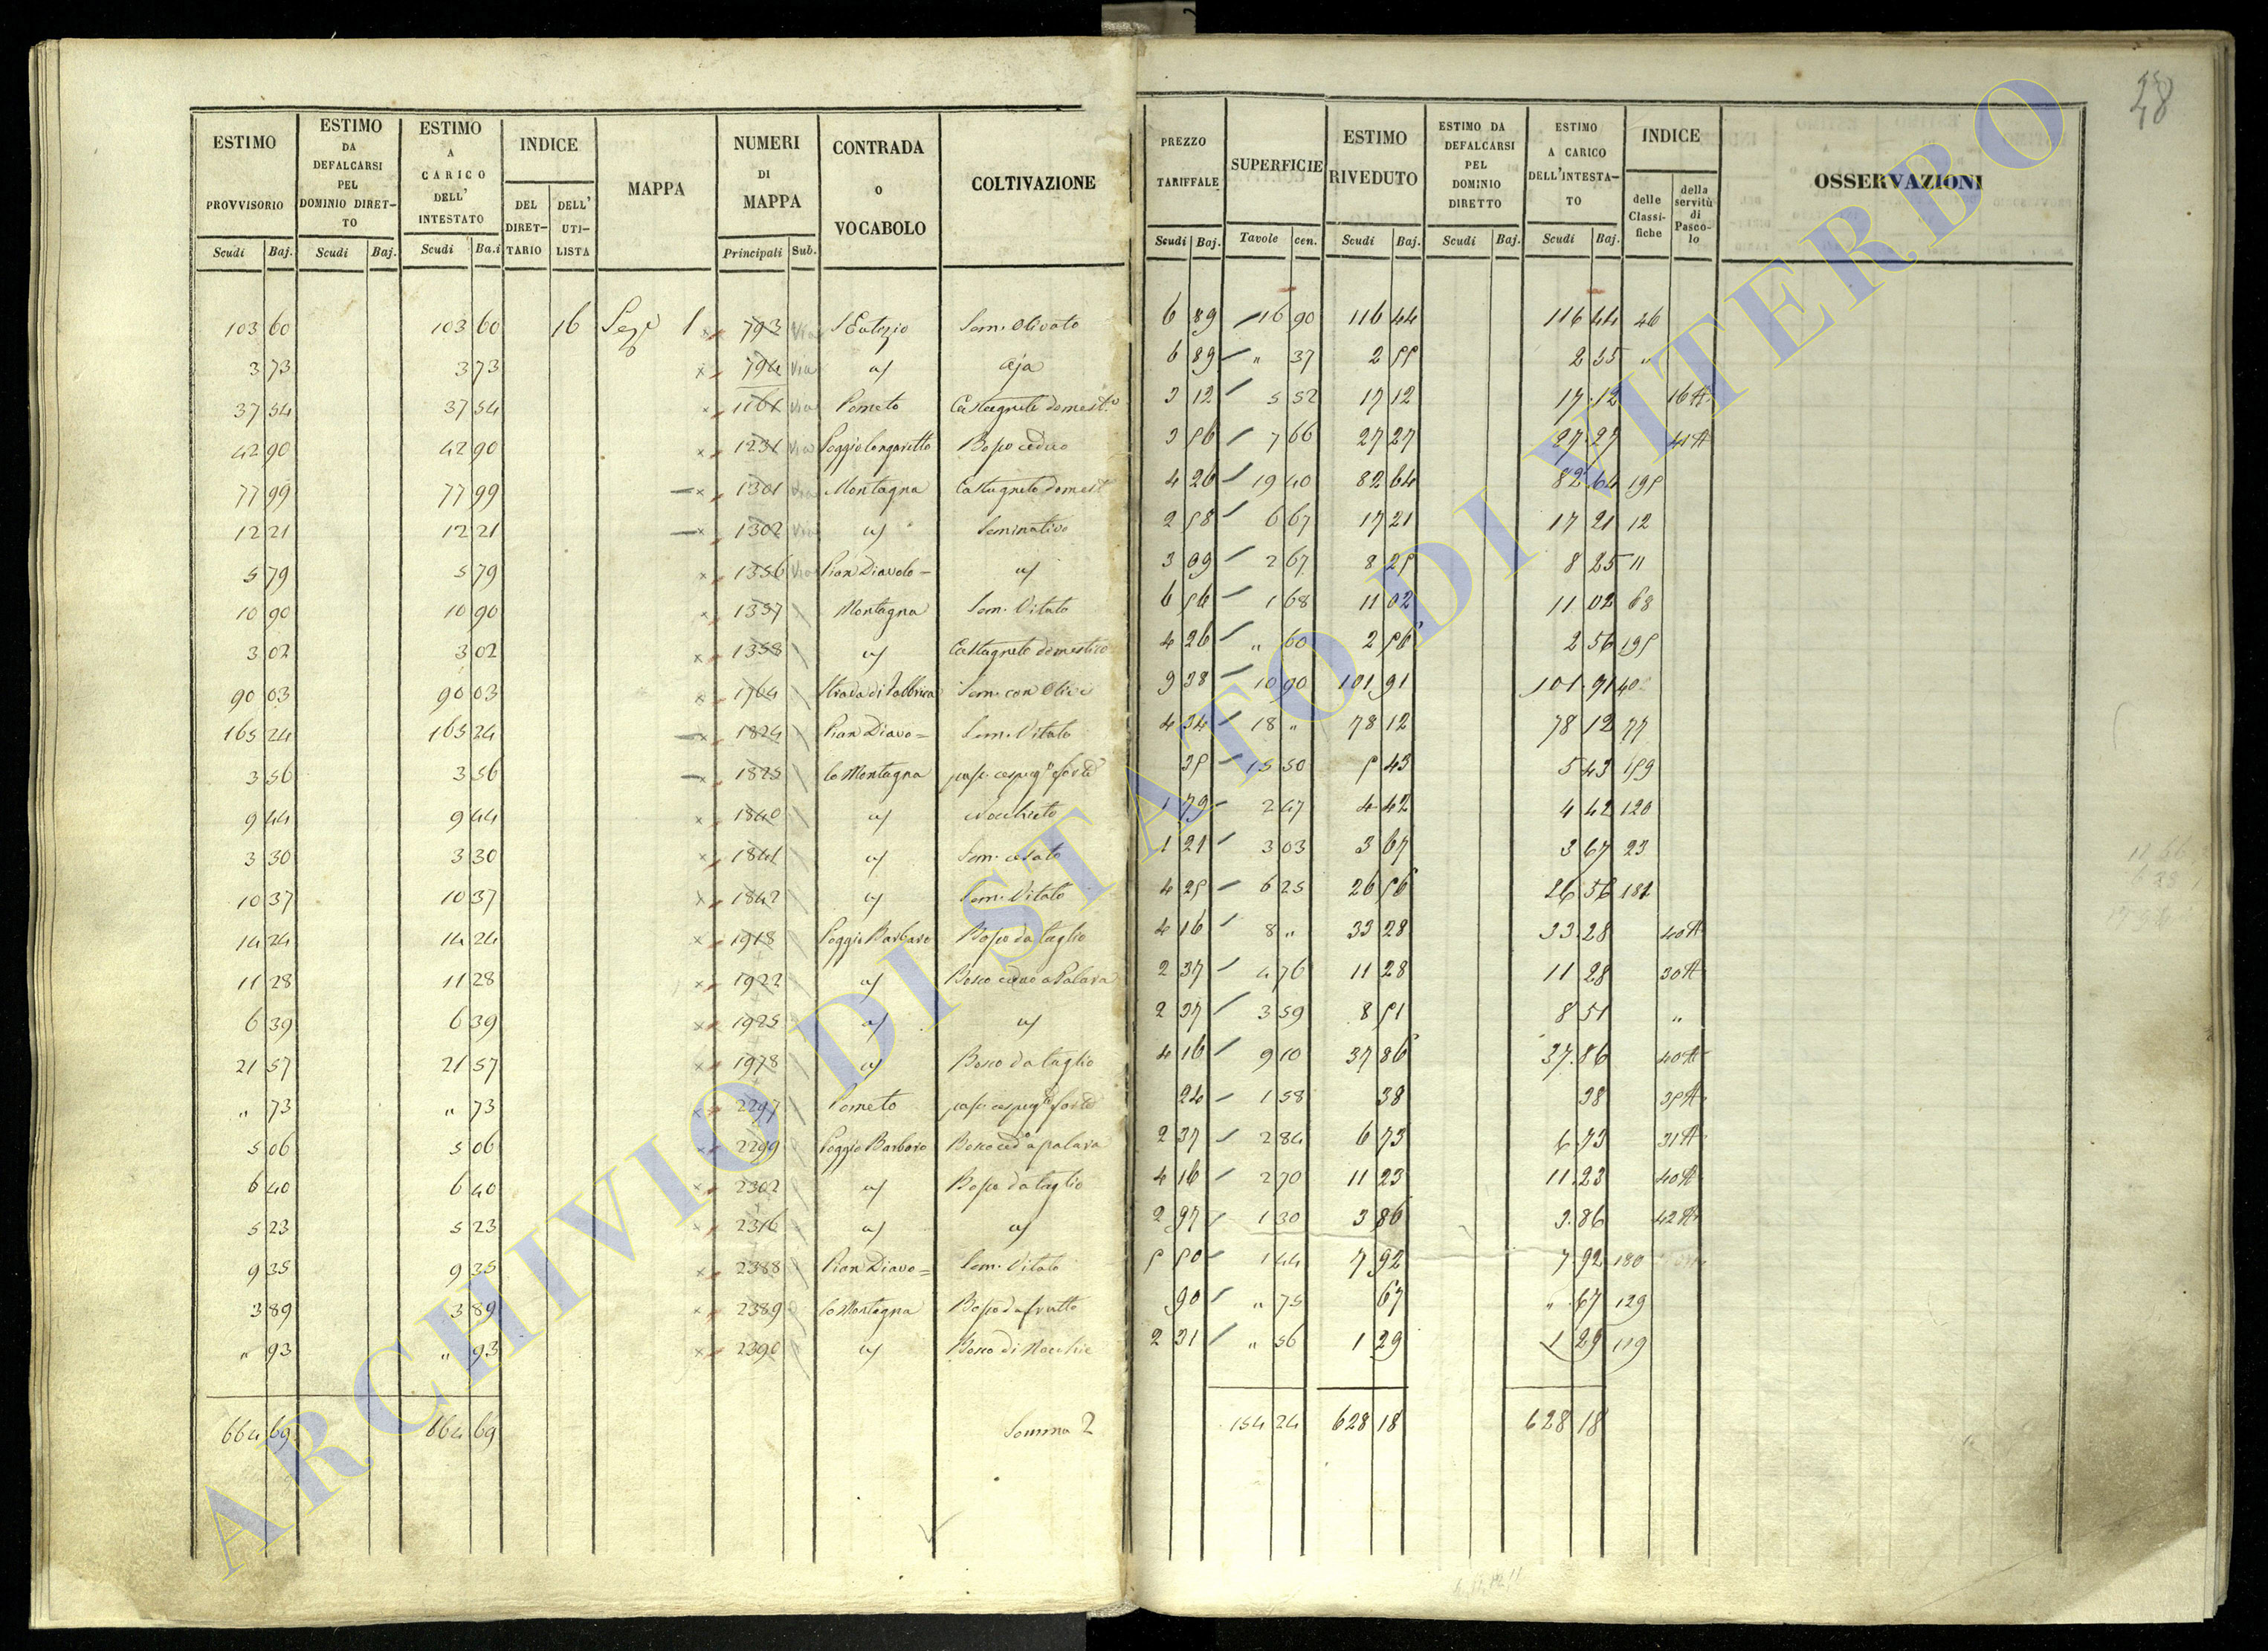 28
ESTIMO PROVVISORIO Scudi Baj. | ESTIMO DA DEFALCARSI PEL DOMINIO DIRET-TO Scudi Baj. | ESTIMO A CARICO DELL' INTESTATO Scudi Ba.i | INDICE DEL DIRET-TARIO | DELL' UTI-LISTA | MAPPA | NUMERI DI MAPPA Principali Sub. | CONTRADA O VOCABOLO | COLTIVAZIONE | PREZZO TARIFFALE Scudi Baj. | SUPERFICIE Tavole cen. | ESTIMO RIVEDUTO Scudi Baj. | ESTIMO DA DEFALCARSI PEL DOMINIO DIRETTO Scudi Baj. | ESTIMO A CARICO DELL'INTESTA-TO Scudi Baj. | INDICE delle Classi-fiche | della servitù di Pasco-lo | OSSERVAZIONI
103 60 103 60 16 1 793 Via S Eutizio Sem. Olivato 6 89 16 90 116 44 116 44 26
3 73 3 73 794 Via Aja 6 89 " 37 2 55 2 55 "
37 54 37 54 1161 Via Pometo Castagneto domest.o 3 12 5 52 17 12 17.12 16 A
42 90 42 90 1231 Via Bosco ceduo 3 56 7 66 27 27 27.27 41 A
77 99 77 99 1301 Via Montagna Castagneto domest 4 26 19 40 82 64 82 64 195
12 21 12 21 1302 Via Seminativo 2 58 6 67 17 21 17 21 12
5 79 5 79 1356 Via Pian Diavolo 3 09 2 67 8 25 8 25 11
10 90 10 90 1357 Montagna Sem. Vitato 6 56 1 68 11 02 11 02 68
3 02 3 02 1358 Castagneto domestico 4 26 " 60 2 56 2 56 195
90 03 90 03 1764 Strada di Fabbrica Sem. con Olivi 9 38 10 90 101 91 101.91 40
165 24 165 24 1824 Pian Diavo= Sem. Vitato 4 34 18 " 78 12 78 12 77
3 56 3 56 1825 la Montagna 35 15 50 5 43 5 43 159
9 44 9 44 1840 Nocchieto 1 79 2 47 4 42 4 42 120
3 30 3 30 1841 1 21 3 03 3 67 3 67 23
10 37 10 37 1842 Sem. Vitato 4 25 6 25 26 56 26 56 181
14 24 14 24 1918 Poggio Barbaro Bosco da taglio 4 16 8 " 33 28 33.28 40 A
11 28 11 28 1922 Bosco ceduo a Palara 2 37 4 76 11 28 11 28 30 A
6 39 6 39 1925 2 37 3 59 8 51 8 51 "
21 57 21 57 1978 Bosco da taglio 4 16 9 10 37 86 37.86 40 A
" 73 " 73 2297 Pometo 24 1 58 38 38 35 A
5 06 5 06 2299 Poggio Barbaro Bosco ced.o a palara 2 37 2 84 6 73 6.73 31 A
6 40 6 40 2302 Bosco da taglio 4 16 2 70 11 23 11.23 40 A
5 23 5 23 2316 2 97 1 30 3 86 3.86 42 A
9 35 9 35 2388 Pian Diavo= Sem. Vitato 5 50 1 44 7 92 7.92 180
3 89 3 89 2389 la Montagna Bosco da frutto 90 " 75 67 " 67 129
" 93 " 93 2390 Bosco di Nocchie 2 31 " 56 1 29 1 29 119
664 69 664 69 Somma 2 154 24 628 18 628 18
ARCHIVIO DI STATO DI VITERBO